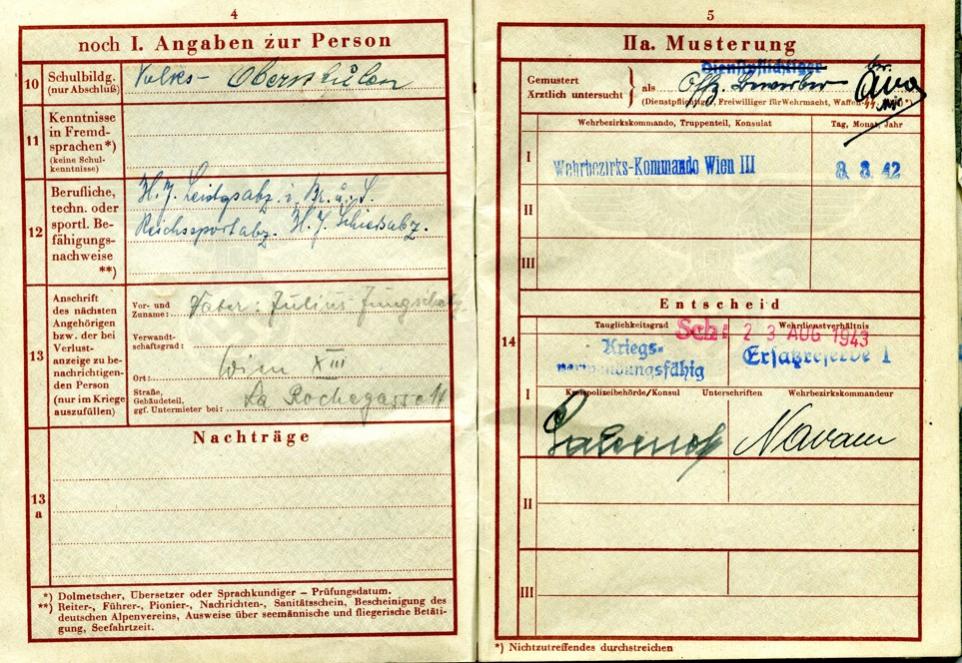 4
noch I. Angaben zur Person
10 Schulbildg. (nur Abschluß) Volks- Oberschulen
11 Kenntnisse in Fremdsprachen*) (keine Schulkenntnisse)
12 Berufliche, techn. oder sportl. Befähigungsnachweise **)
H.J. Leistgsabz. i. Br. u. S.
Reichssportabz. H.J. Schießabz.
13 Anschrift des nächsten Angehörigen bzw. der bei Verlustanzeige zu benachrichtigenden Person (nur im Kriege auszufüllen)
Vor- und Zuname: Vater: Julius
Verwandtschaftsgrad:
Ort: Wien XIII
Straße, Gebäudeteil, ggf. Untermieter bei: La Rochegasse
Nachträge
13 a
*) Dolmetscher, Übersetzer oder Sprachkundiger – Prüfungsdatum.
**) Reiter-, Führer-, Pionier-, Nachrichten-, Sanitätsschein, Bescheinigung des
deutschen Alpenvereins, Ausweise über seemännische und fliegerische Betäti-
gung, Seefahrtzeit.
5
IIa. Musterung
Dienstpflichtiger
Gemustert
Ärztlich untersucht } als Offz. Bewerber
(Dienstpflichtiger, Freiwilliger für Wehrmacht, Waffen-SS, *)
Wehrbezirkskommando, Truppenteil, Konsulat Tag, Monat, Jahr
I Wehrbezirks-Kommando Wien III 42
II
III
Entscheid
14
Tauglichkeitsgrad Wehrdienstverhältnis
Sch: 23 AUG 1943
Kriegs-
verwendungsfähig Ersatzreserve I
I Kreispolizeibehörde/Konsul Unterschriften Wehrbezirkskommandeur
II
III
*) Nichtzutreffendes durchstreichen